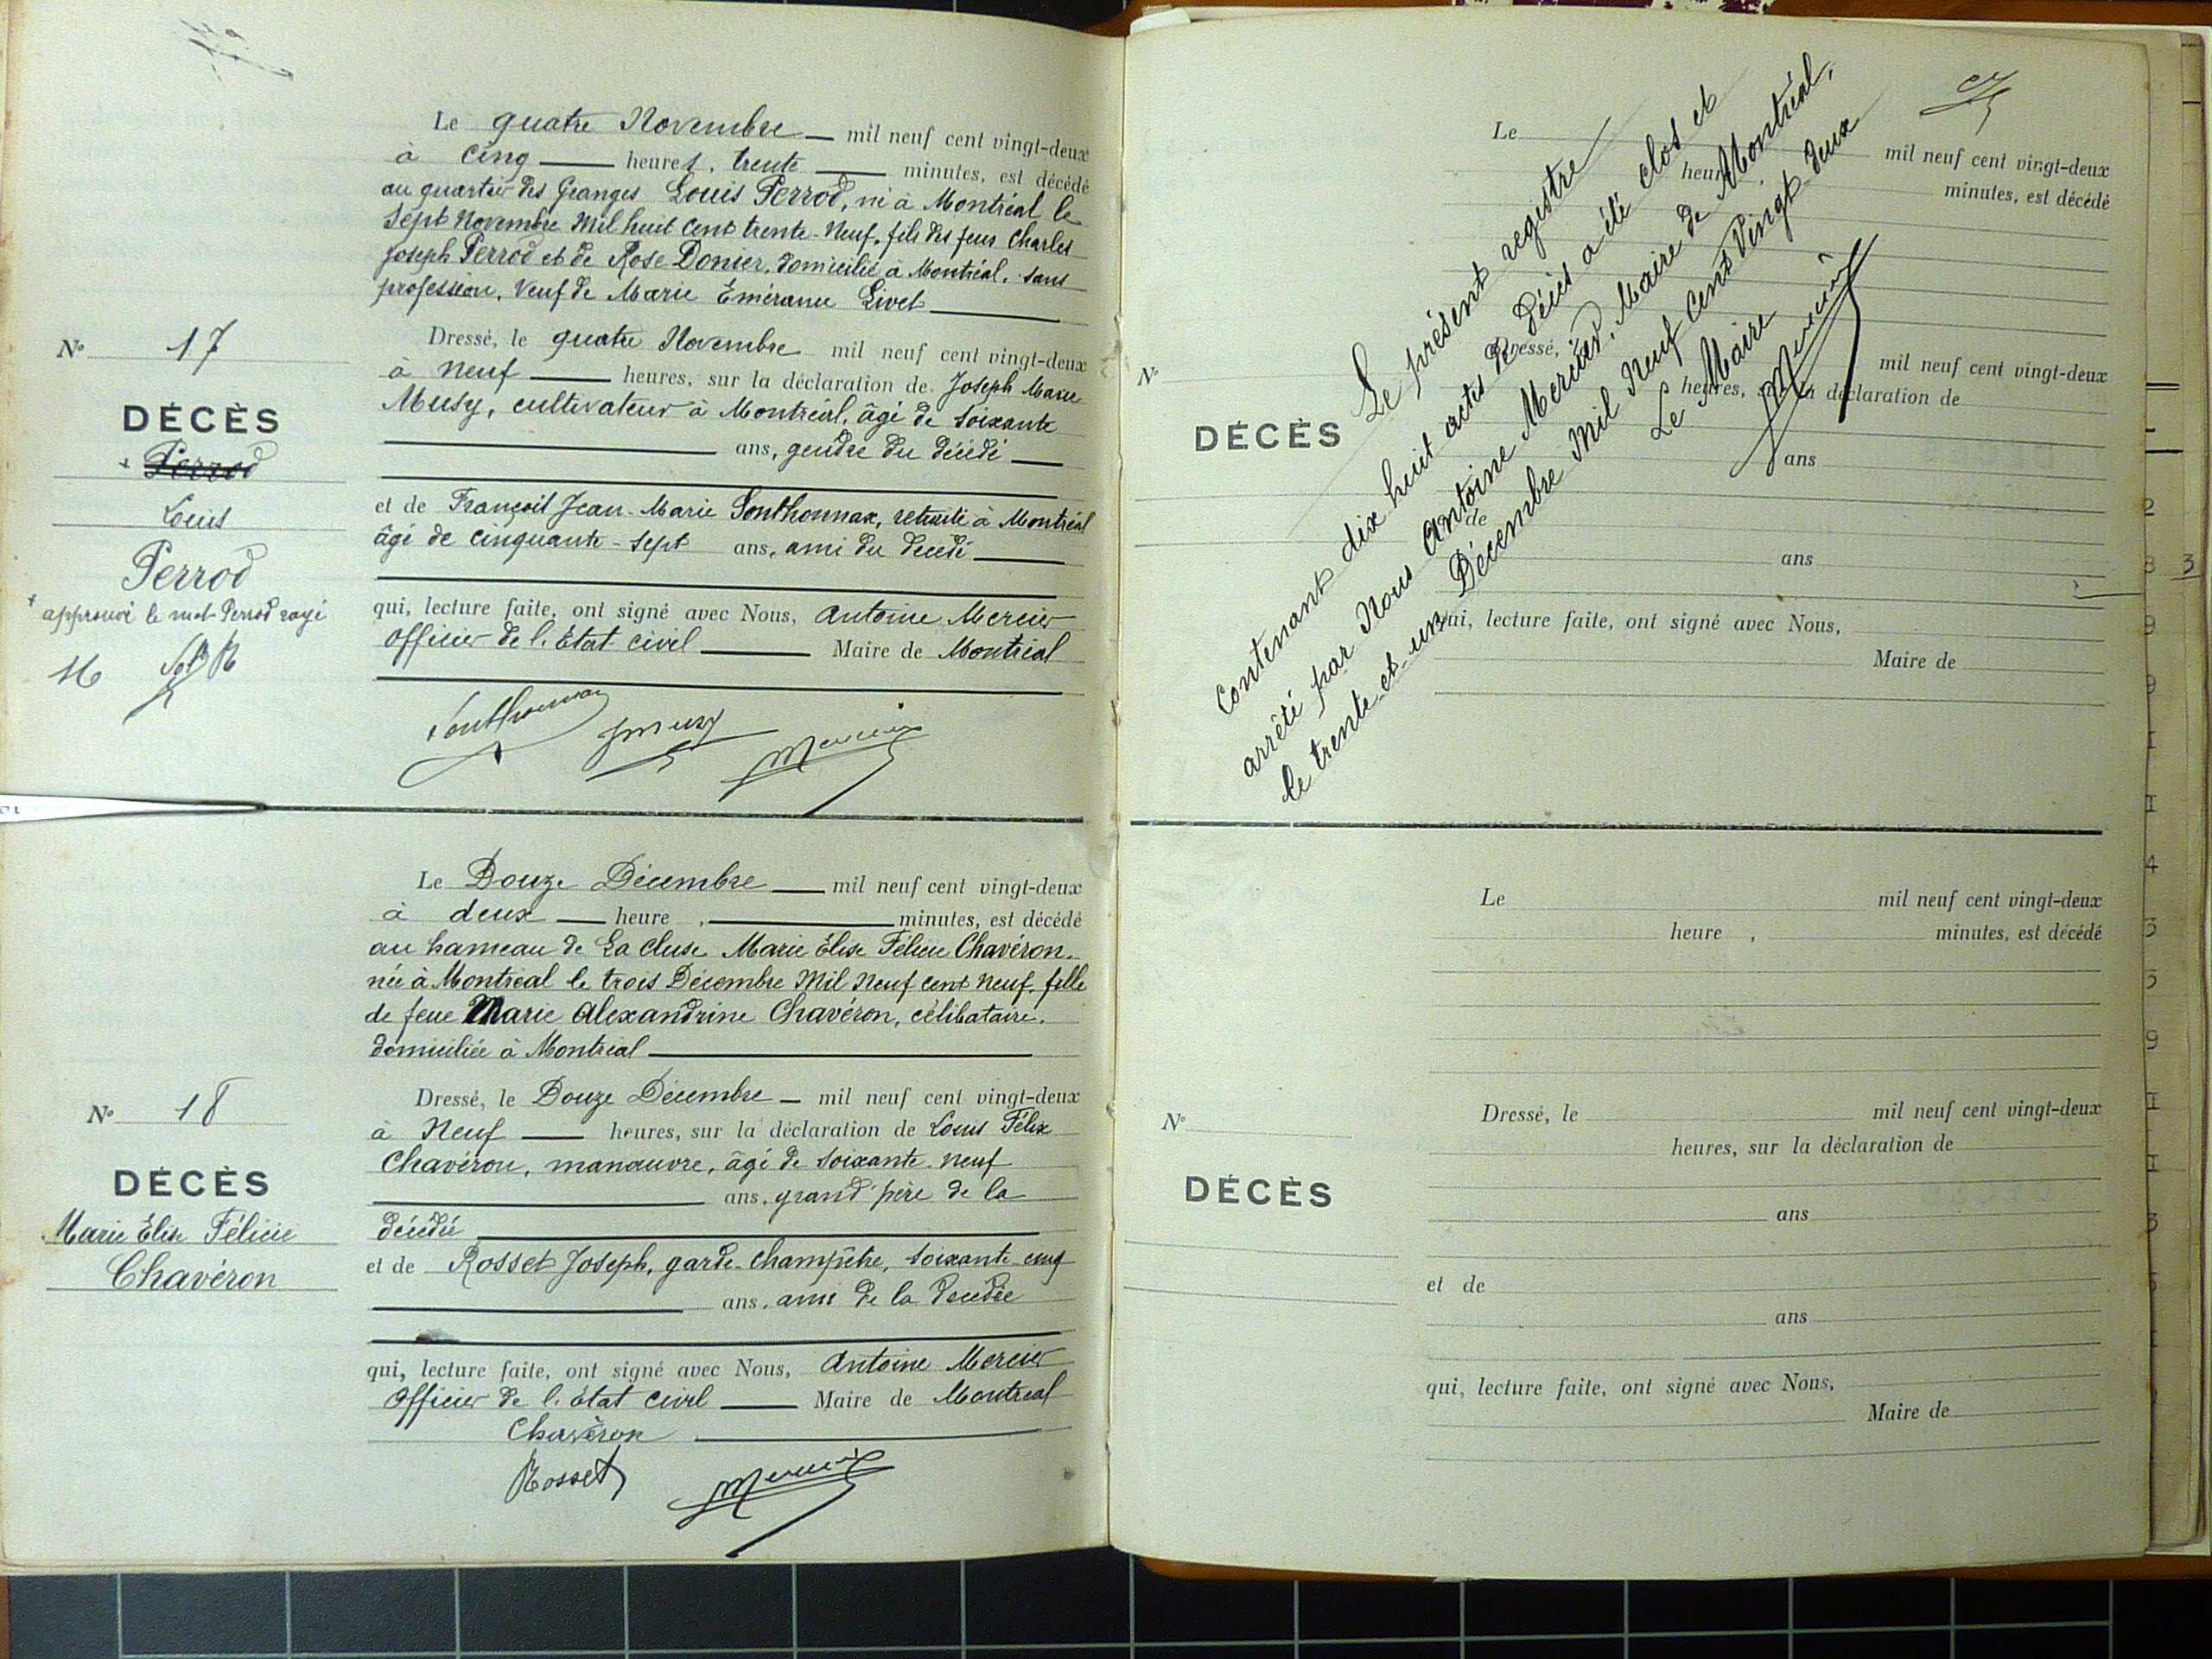 Le quatre Novembre — mil neuf cent vingt-deux
à cinq — heures, trente — minutes, est décédé
au quartier des Granges Louis Perrod, né à Montréal le
sept Novembre Mil huit cent trente-Neuf, fils des feus Charles
Joseph Perrod et de Rose Donier, domicilié à Montréal, sans
profession, veuf de Marie Émérance Livet
N° 17
DÉCÈS
+ Perrod
Louis
Perrod
+ approuvé le mot Perrod rayé
Dressé, le quatre Novembre mil neuf cent vingt-deux
à Neuf — heures, sur la déclaration de Joseph Marie
Musy, cultivateur à Montréal, âgé de soixante
ans, gendre du décédé
et de François Jean-Marie Sonthonnax, retraité à Montréal
âgé de cinquante-sept ans, ami du décédé
qui, lecture faite, ont signé avec Nous, Antoine Mercier
Officier de l'État civil — Maire de Montréal
Sonthonnax JMusy Mercier
Le Douze Décembre — mil neuf cent vingt-deux
à deux — heure , — minutes, est décédé
au hameau de La Cluse Marie Élise Félicie Chavéron,
née à Montréal le trois Décembre Mil Neuf cent Neuf, fille
de feue Marie Alexandrine Chavéron, célibataire,
domiciliée à Montréal
N° 18
DÉCÈS
Marie Élise Félicie
Chavéron
Dressé, le Douze Décembre — mil neuf cent vingt-deux
à Neuf — heures, sur la déclaration de Louis Félix
Chavéron, manœuvre, âgé de soixante-neuf
ans, grand'père de la
décédée
et de Rosset Joseph, garde-champêtre, soixante-cinq
ans, ami de la décédée
qui, lecture faite, ont signé avec Nous, Antoine Mercier
Officier de l'État civil — Maire de Montréal
Chavéron
Rosset Mercier
Le présent registre
contenant dix huit actes de décès a été clos et
arrêté par Nous Antoine Mercier, Maire de Montréal,
le trente et un Décembre Mil Neuf Cent Vingt-deux
Le Maire
Mercier
Le mil neuf cent vingt-deux
heure minutes, est décédé
N°
DÉCÈS
Dressé, mil neuf cent vingt-deux
heures, sur la déclaration de
ans
de
ans
qui, lecture faite, ont signé avec Nous,
Maire de
Le mil neuf cent vingt-deux
heure , minutes, est décédé
N°
DÉCÈS
Dressé, le mil neuf cent vingt-deux
heures, sur la déclaration de
ans
et de
ans
qui, lecture faite, ont signé avec Nous,
Maire de